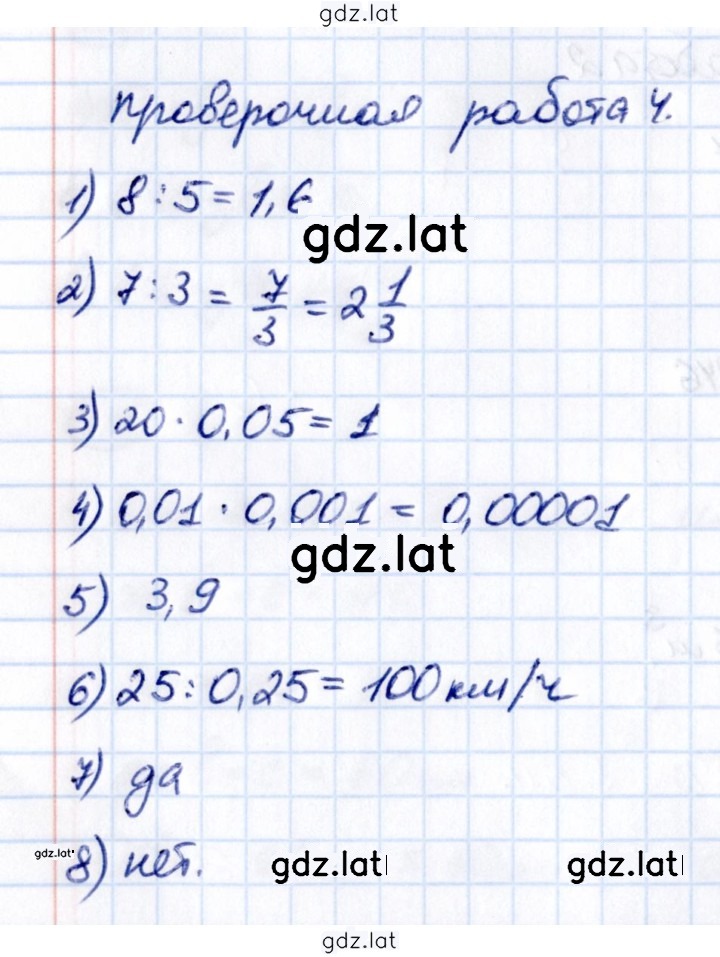 gdz.lat
проверочная работа 4.
1) 8 : 5 = 1,6
gdz.lat
2) 7 : 3 = 7/3 = 2 1/3
3) 20 · 0,05 = 1
4) 0,01 · 0,001 = 0,00001
gdz.lat
5) 3,9
6) 25 : 0,25 = 100 км/ч
7) да
gdz.lat
8) нет.
gdz.lat
gdz.lat
gdz.lat